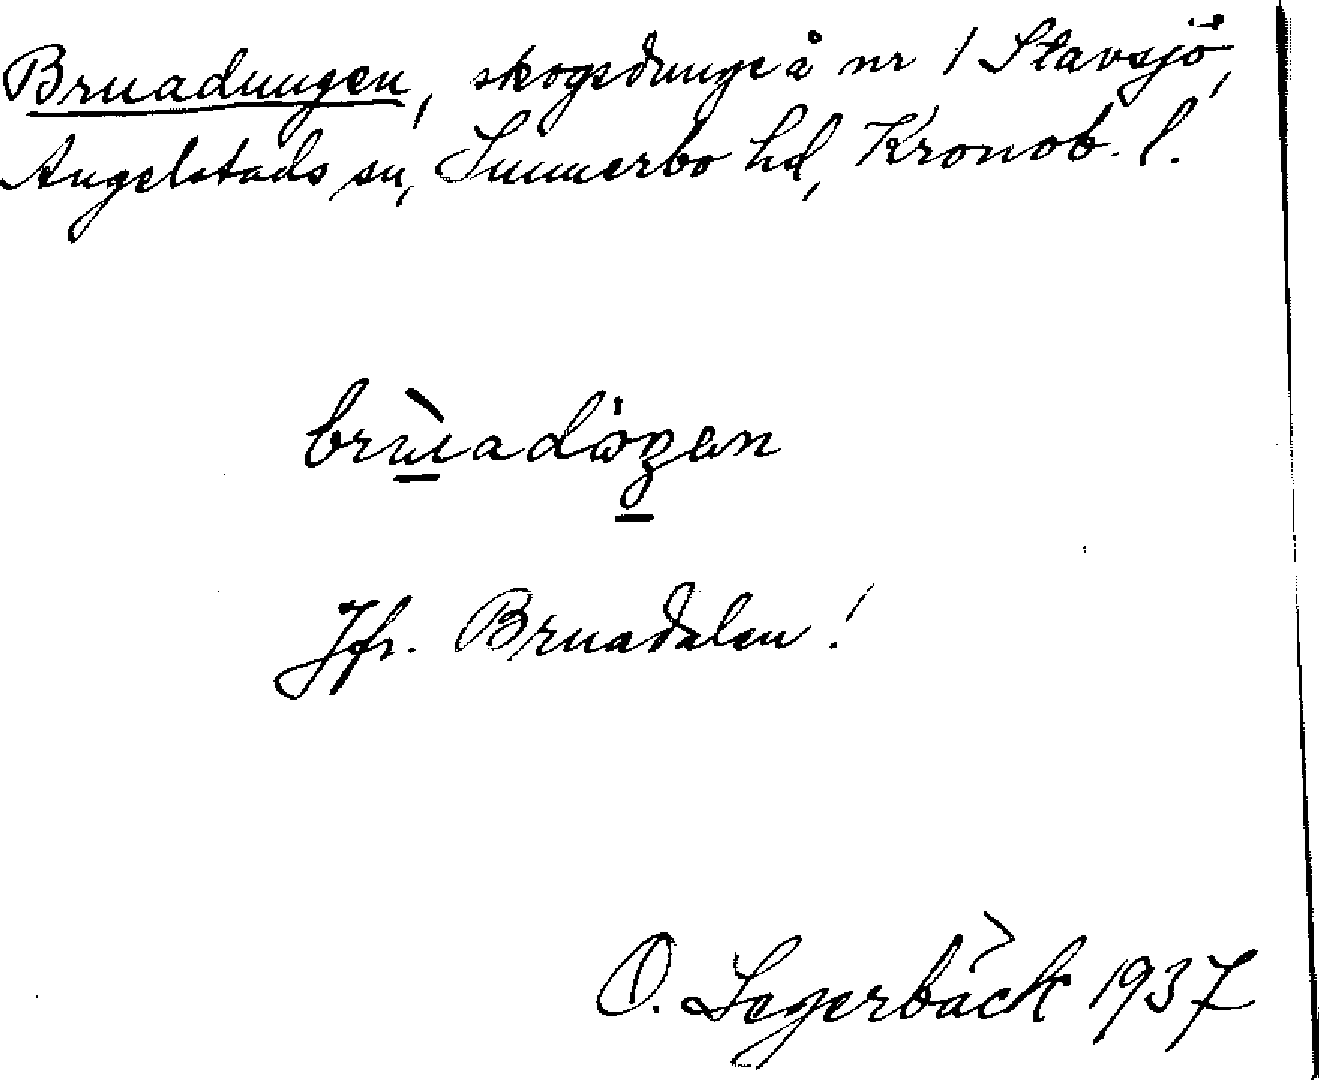 Bruadungen, skogsdunge å nr 1 Stavsjö,
Angelstads sn, Sunnerbo hd, Kronob. l.
Jfr. Bruadalen!
O. Segerbäck 1937